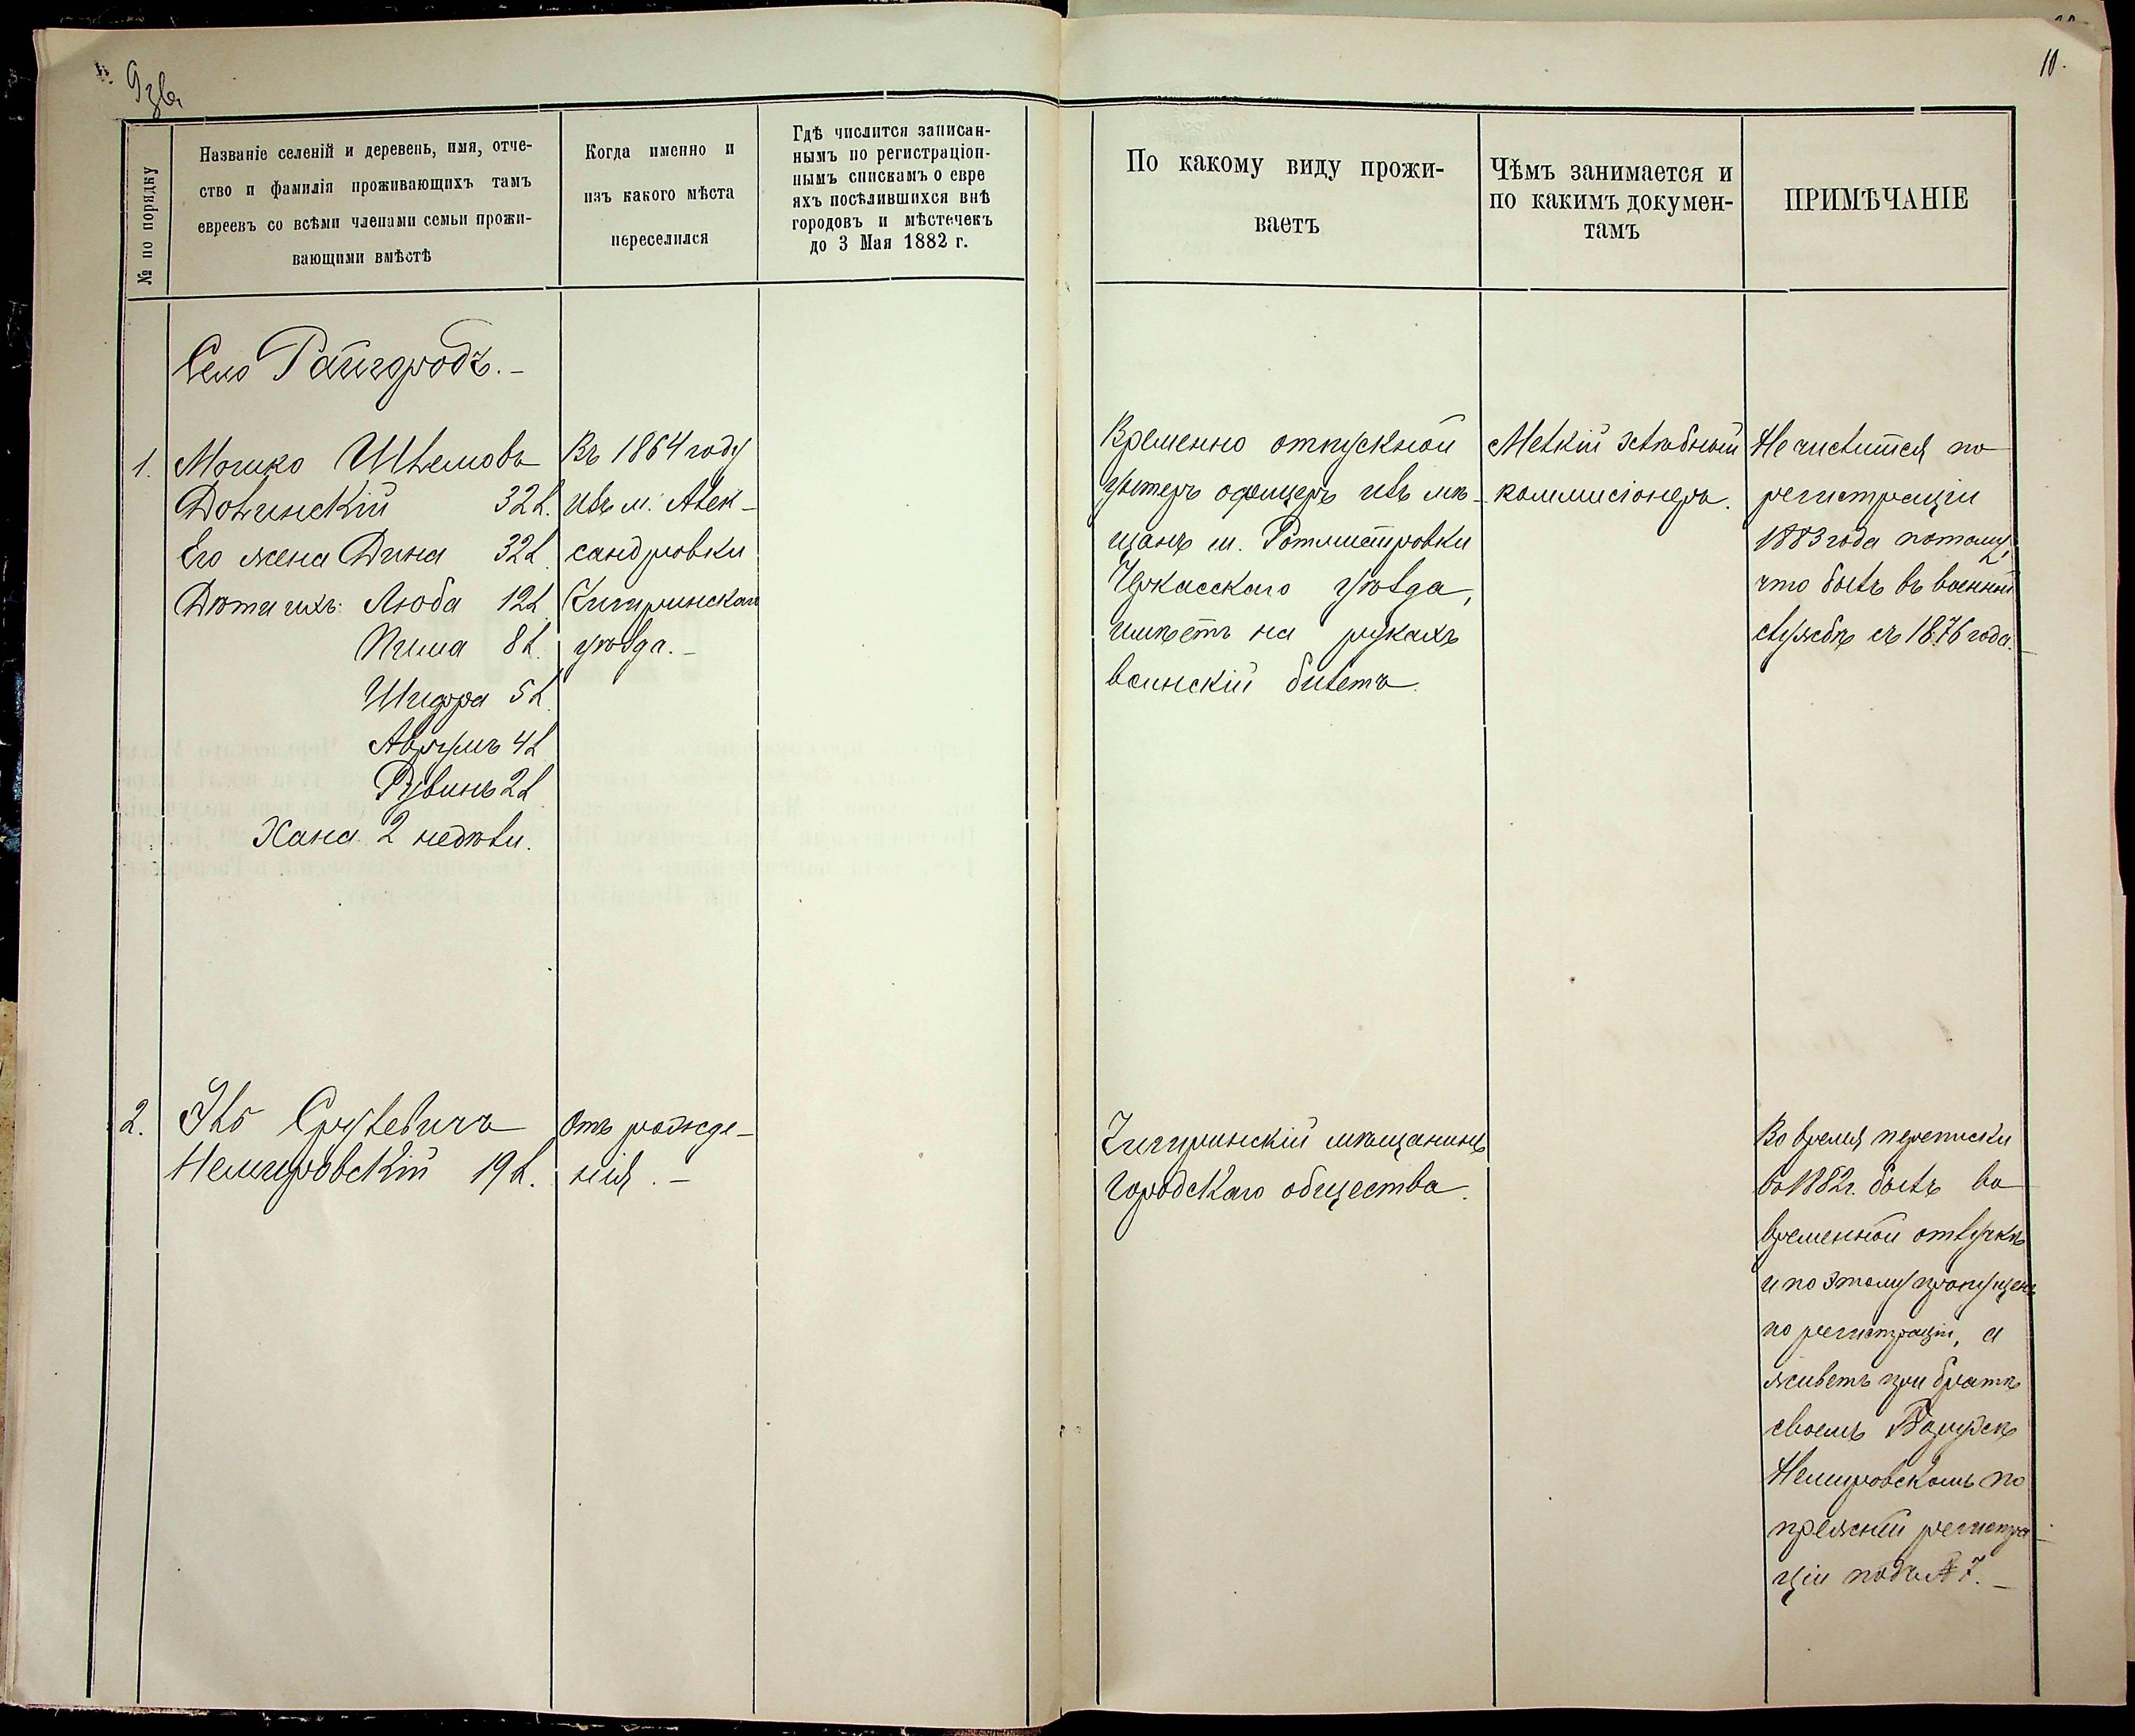 9 зв.
10.
№ по порядку
Названіе селеній и деревень, имя, отче-
ство и фамилія проживающихъ тамъ
евреевъ со всѣми членами семьи прожи-
вающими вмѣстѣ
Когда именно и
изъ какого мѣста
переселился
Гдѣ числится записан-
нымъ по регистраціон-
нымъ спискамъ о евре
яхъ поселившихся внѣ
городовъ и мѣстечекъ
до 3 Мая 1882 г.
По какому виду прожи-
ваетъ
Чѣмъ занимается и
по какимъ докумен-
тамъ
ПРИМѢЧАНІЕ
Село Райгородъ.-
1. Мошко Шлемовъ
Долинскій 32 л.
Его жена Дина 32 л.
Дѣти ихъ: Люба 12 л.
8 л.
Шифра 5 л.
Аврумъ 4 л.
Рувинъ 2 л.
Хана 2 недѣли.
Въ 1864 году
изъ м. Алек-
сандровки
Чигиринскаго
уѣзда.-
Временно отпускной
унтеръ офицеръ изъ мѣ-
щанъ м. Ротмистровки
Черкасскаго уѣзда,
имѣетъ на рукахъ
воинскій билетъ.
Мелкій хлѣбный
коммисіонеръ.
Не числится по
регистраціи
1883 года потому,
что былъ въ военной
службѣ съ 1876 года.-
2. Срулевичъ
Немировскій 19 л.
Отъ рожде-
нія.-
Чигиринскій мѣщанинъ
городскаго общества.
Во время переписки
въ 1882 г. былъ во
временной отлучкѣ
и по этому пропущенъ
по регистраціи, а
живетъ при братѣ
своемъ
Немировскомъ по
прежней регистра-
ціи подъ № 7.-